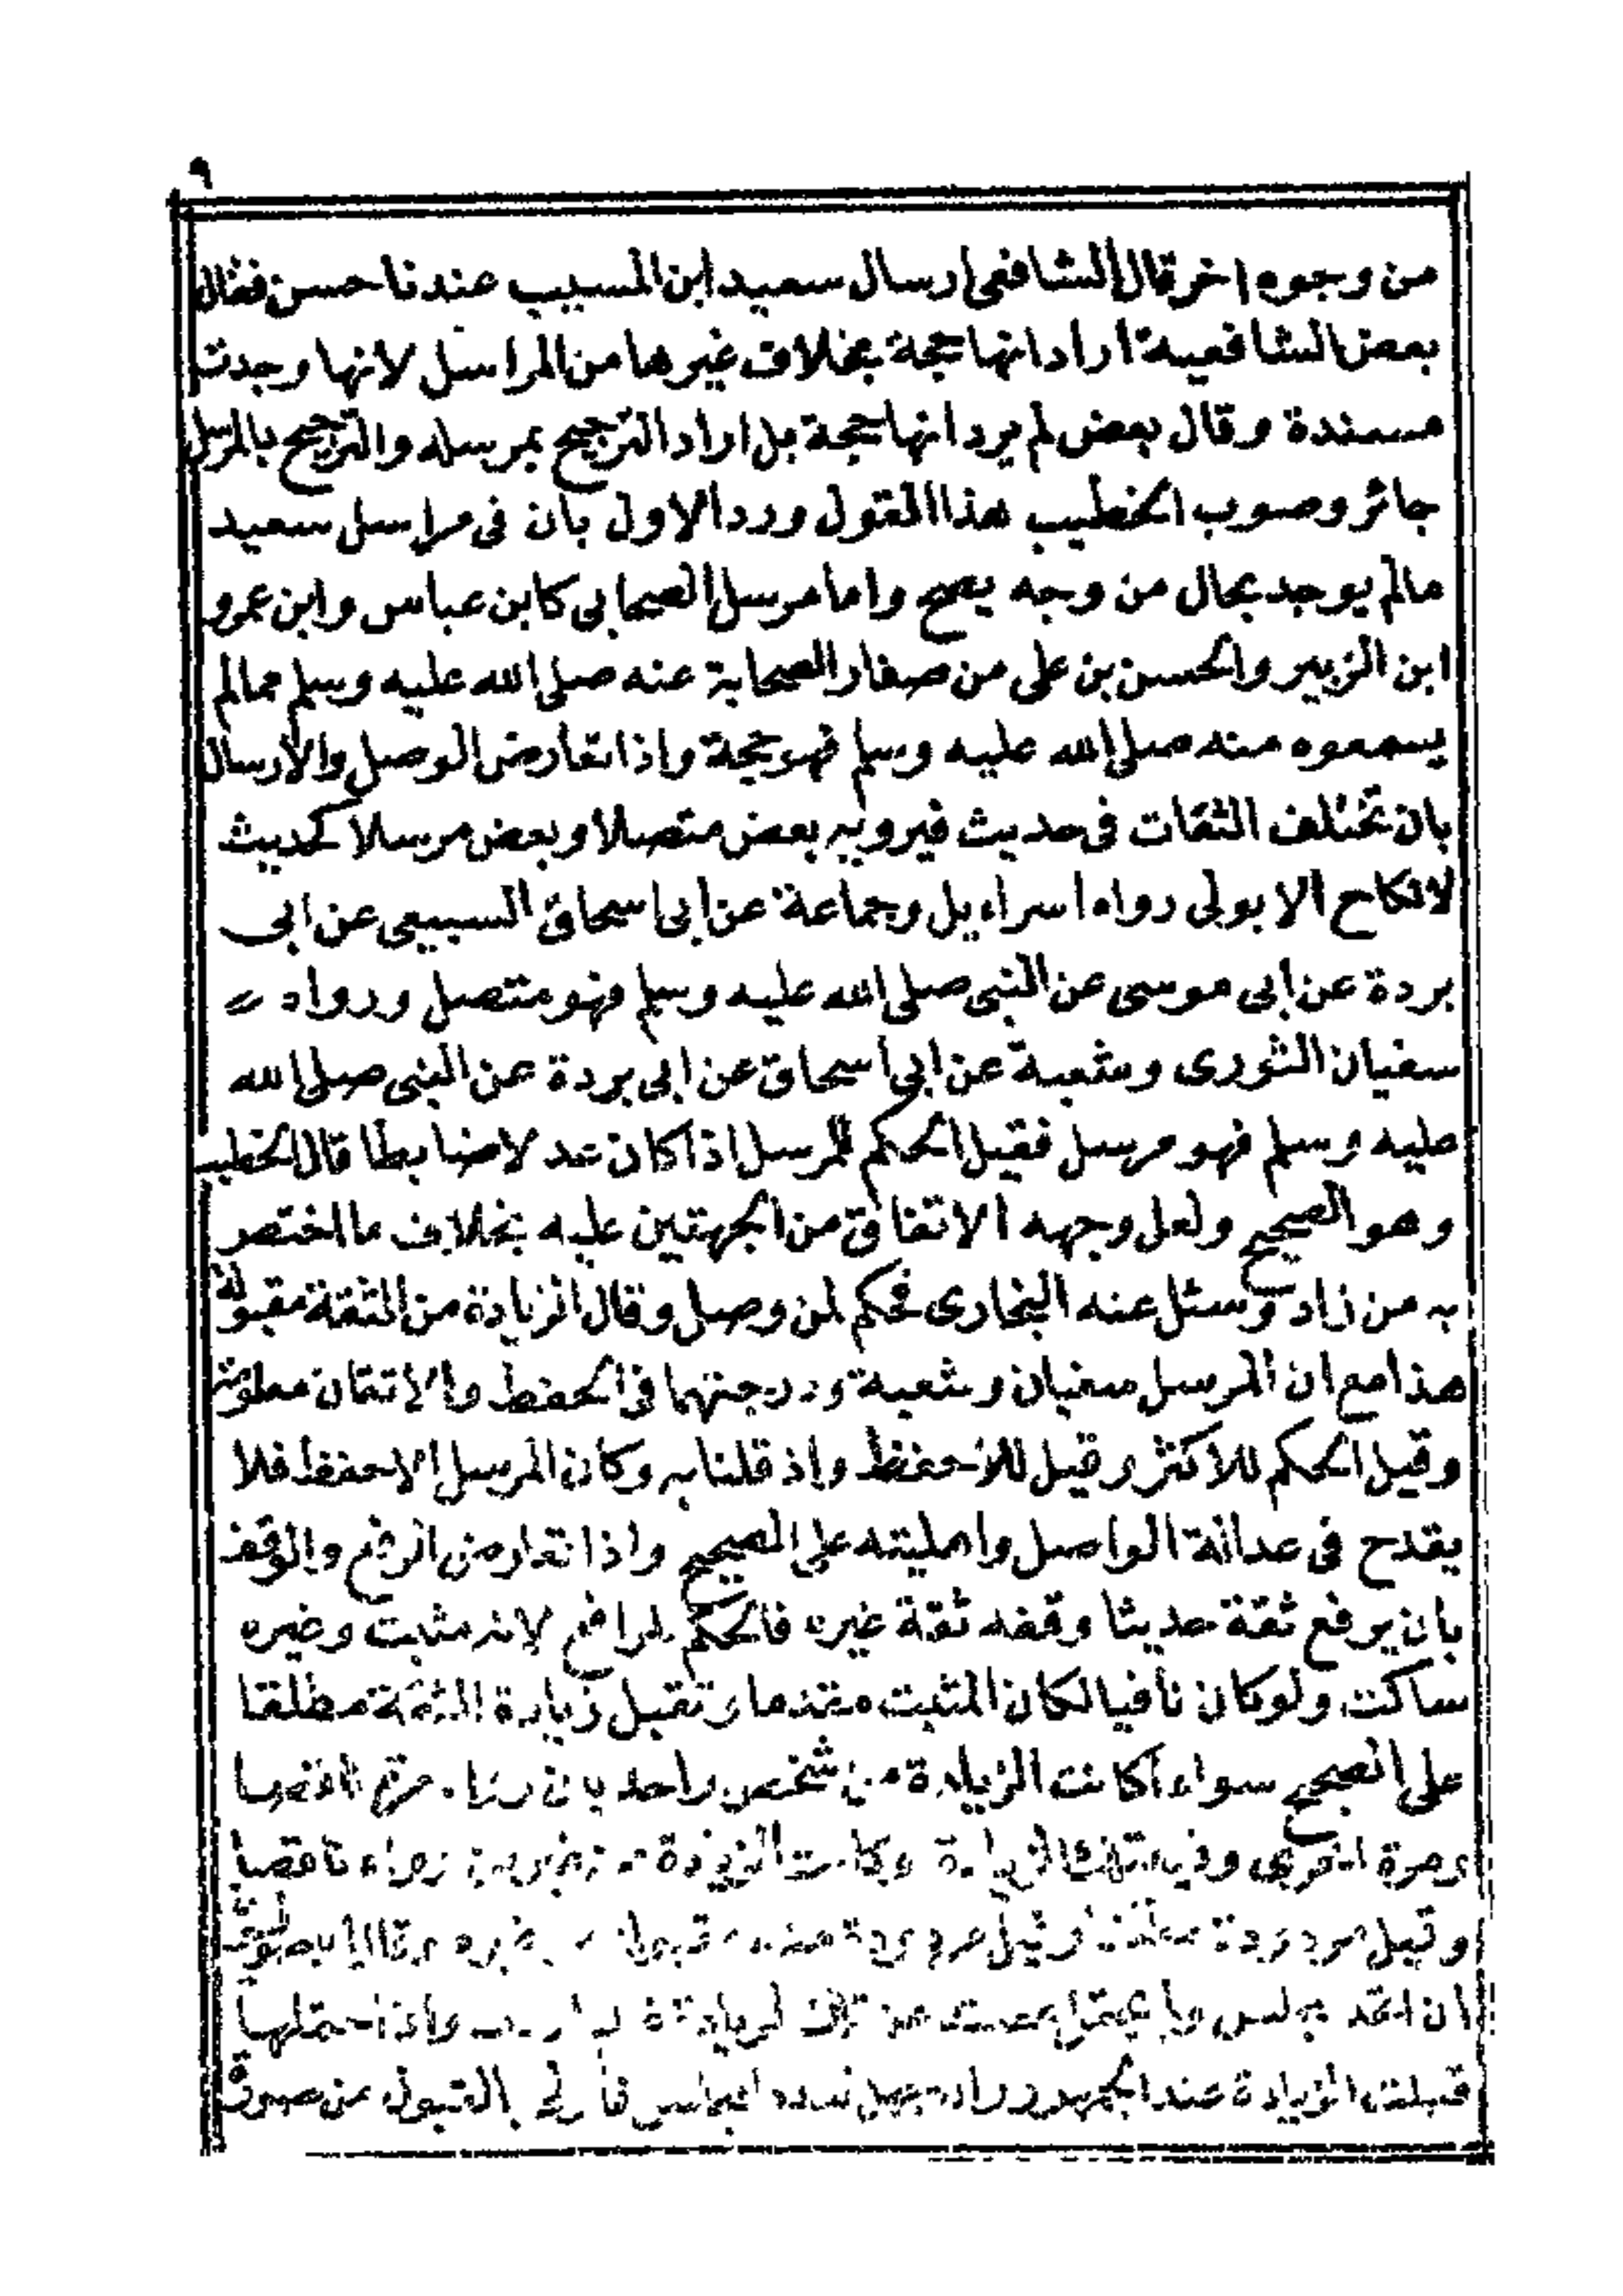 ٩
من وجوه اخر قال الشافعى ارسال سعيد ابن المسيب عندنا حسن فقال
بعض الشافعية اراد انها حجة بخلاف غيرها من المراسل لانها وجدت
مسندة وقال بعض لم يرد انها حجة بل اراد الترجيح بمرسله والترجيح بالمرسل
جائز وصوب الخطيب هذا القول ورد الاول بان فى مراسل سعيد
مالم يوجد بحال من وجه يصح واما مرسل الصحابى كابن عباس وابن عمرو
ابن الزبير والحسن بن على من صغار الصحابة عنه صلى الله عليه وسلم ممالم
يسمعوه منه صلى الله عليه وسلم فهو حجة واذا تعارض الوصل والارسال
بان تختلف الثقات فى حديث فيرويه بعض متصلا وبعض مرسلا كحديث
لا نكاح الا بولى رواه اسراءيل وجماعة عن ابى اسحاق السبيعى عن ابى
بردة عن ابى موسى عن النبى صلى الله عليه وسلم فهو متصل ورواه
سفيان الثورى وشعبة عن ابى اسحاق عن ابى بردة عن النبى صلى الله
عليه وسلم فهو مرسل فقيل الحكم للمرسل اذا كان عد لا ضابطا قال الخطيب
وهو الصحيح ولعل وجهه الاتفاق من الجهتين عليه بخلاف ما اختصر
به من زاد وسئل عنه البخارى فحكم لمن وصل وقال الزيادة من الثقة مقبولة
هذا مع ان المرسل سفيان وشعبة ودرجتهما فى الحفظ والاتقان معلومة
وقيل الحكم للاكثر وقيل للاحفظ واذ قلنا به وكان المرسل الاحفظ فلا
يقدح فى عدالة الواصل واهليته على الصحيح واذا تعارض الرفع والوقف
بان يرفع ثقة حديثا وقفه ثقة غيره فالحكم للرافع لانه مثبت وغيره
ساكت ولو كان نافيا لكان المثبت مقدما وتقبل زيادة الثقة مطلقا
على الصحيح سواء اكانت الزيادة من شخص واحد بان رواه مرة ناقصا
ومرة اخرى وفيه تلك الزيادة وكانت الزيادة من رواه ناقصا
وقيل مردودة مطلقا وقيل مردودة منه مقبولة من غيره وقال
ان اتحد مجلس ولم يحتمل عن تلك الزيادة واذا احتملها
قبلت الزيادة عند الجمهور تعدد المجلس فأولى بالقبول من صورة